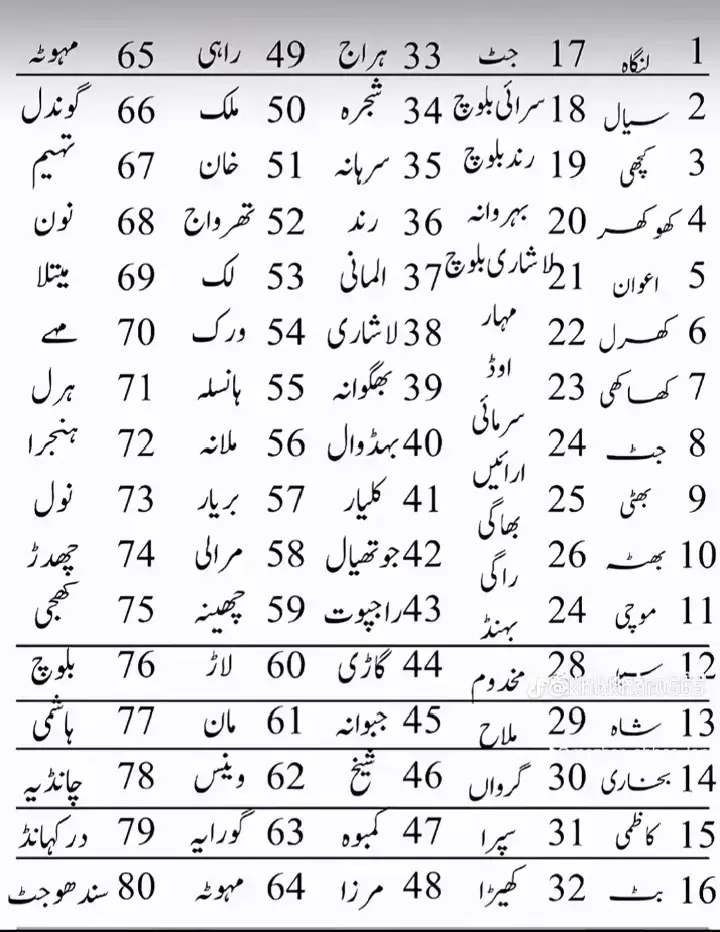 1 لنگاہ 17 جٹ 33 ہراج 49 راہی 65 مہوٹہ
2 سیال 18 سرائی بلوچ 34 شجرہ 50 ملک 66 گوندل
3 کچھی 19 رند بلوچ 35 سرہانہ 51 خان 67 تہیم
4 کھوکھر 20 بہروانہ 36 رند 52 تھرواج 68 نون
5 اعوان 21 لاشاری بلوچ 37 المانی 53 لک 69 میتلا
6 کھرل 22 مہار 38 لاشاری 54 ورک 70 مہے
7 کھاکھی 23 اوڈ 39 بھگوانہ 55 ہانسلہ 71 ہرل
سرمائی
8 جٹ 24 ارائیں 40 بہڈوال 56 ملانہ 72 ہنجرا
9 بھٹی 25 بھاگی 41 کلیار 57 بریار 73 نول
10 بھٹہ 26 راگی 42 جوتھیال 58 مرالی 74 چھدڑ
11 موچی 24 بہنڈ 43 راجپوت 59 چھینہ 75 کھچی
12 28 مخدوم 44 گاڑی 60 لاڑ 76 بلوچ
13 شاہ 29 ملاح 45 جبوانہ 61 مان 77 ہاشمی
14 بخاری 30 گرواں 46 شیخ 62 وینس 78 چانڈیہ
15 کاظمی 31 سپرا 47 کمبوہ 63 گورایہ 79 درکھانڈ
16 بٹ 32 کھیڑا 48 مرزا 64 مہوٹہ 80 سندھوجٹ